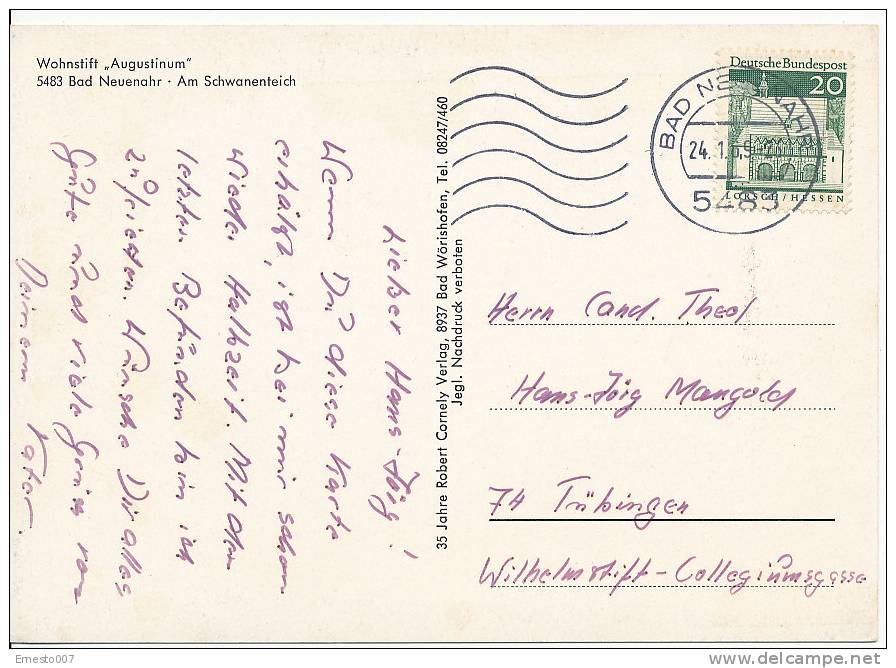 Wohnstift „Augustinum"
5483 Bad Neuenahr · Am Schwanenteich
Lieber Hans-Jörg!
Wenn Du diese Karte
erhälst, ist bei mir schon
wieder Halbzeit. Mit dem
letzten Befinden bin ich
zufrieden. Wünsche Dir alles
Gute und viele Grüsse von
Deinem Vater.
35 Jahre Robert Cornely Verlag, 8937 Bad Wörishofen, Tel. 08247/460
Jegl. Nachdruck verboten
BAD NEUENAHR
24.1.
5483
Deutsche Bundespost
20
LORSCH/HESSEN
Herrn Cand. Theol
Hans-Jörg Mangold
74 Tübingen
Wilhelmstift-Collegiumsgasse
Ernesto007
delcampe.net